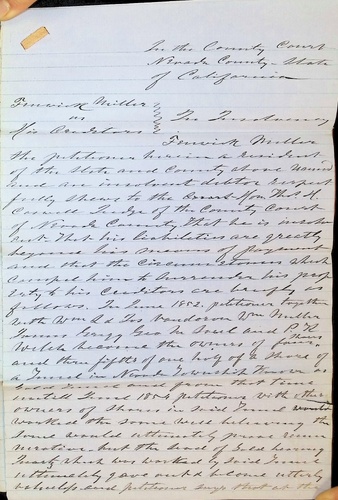 In the County Court
Nevada County - State
of California
Fenwick Miller
vs
His Creditors
In Insolvency
Fenwick Miller
the petitioner herein a resident
of the State and County above named
and an insolvent debtor respect
fully shews to the Hon.
Judge of the County Court
of Nevada County That he is insolv
ent. That his liabilities are greatly
beyond his means of payment
and that the circumstances which
compel him to surrender his prop
erty to his creditors are briefly as
follows. In June 1852, petitioner together
with Wm Miller
James Geo M and P K
Welch became the owners of four
and three fifths of one half of a share of
a Tunnel in Nevada Township Known as
and from that time
untill June 1854 petitioner with others
owners of shares in said Tunnel
worked the same well believing the
same would ultimately prove remu
nerative but the lead of Gold bearing
which was worked by said Tunnel
ultimately gave out & became utterly
and petitioner says that at the